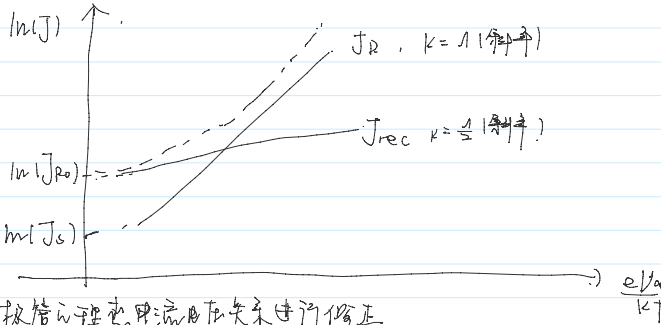 ln(J)
J_D , k = 1 (斜率)
J_rec k = 1/2 (斜率)
ln(J_R0)
ln(J_s)
eVa/kT
极管的理想电流电压关系进行修正